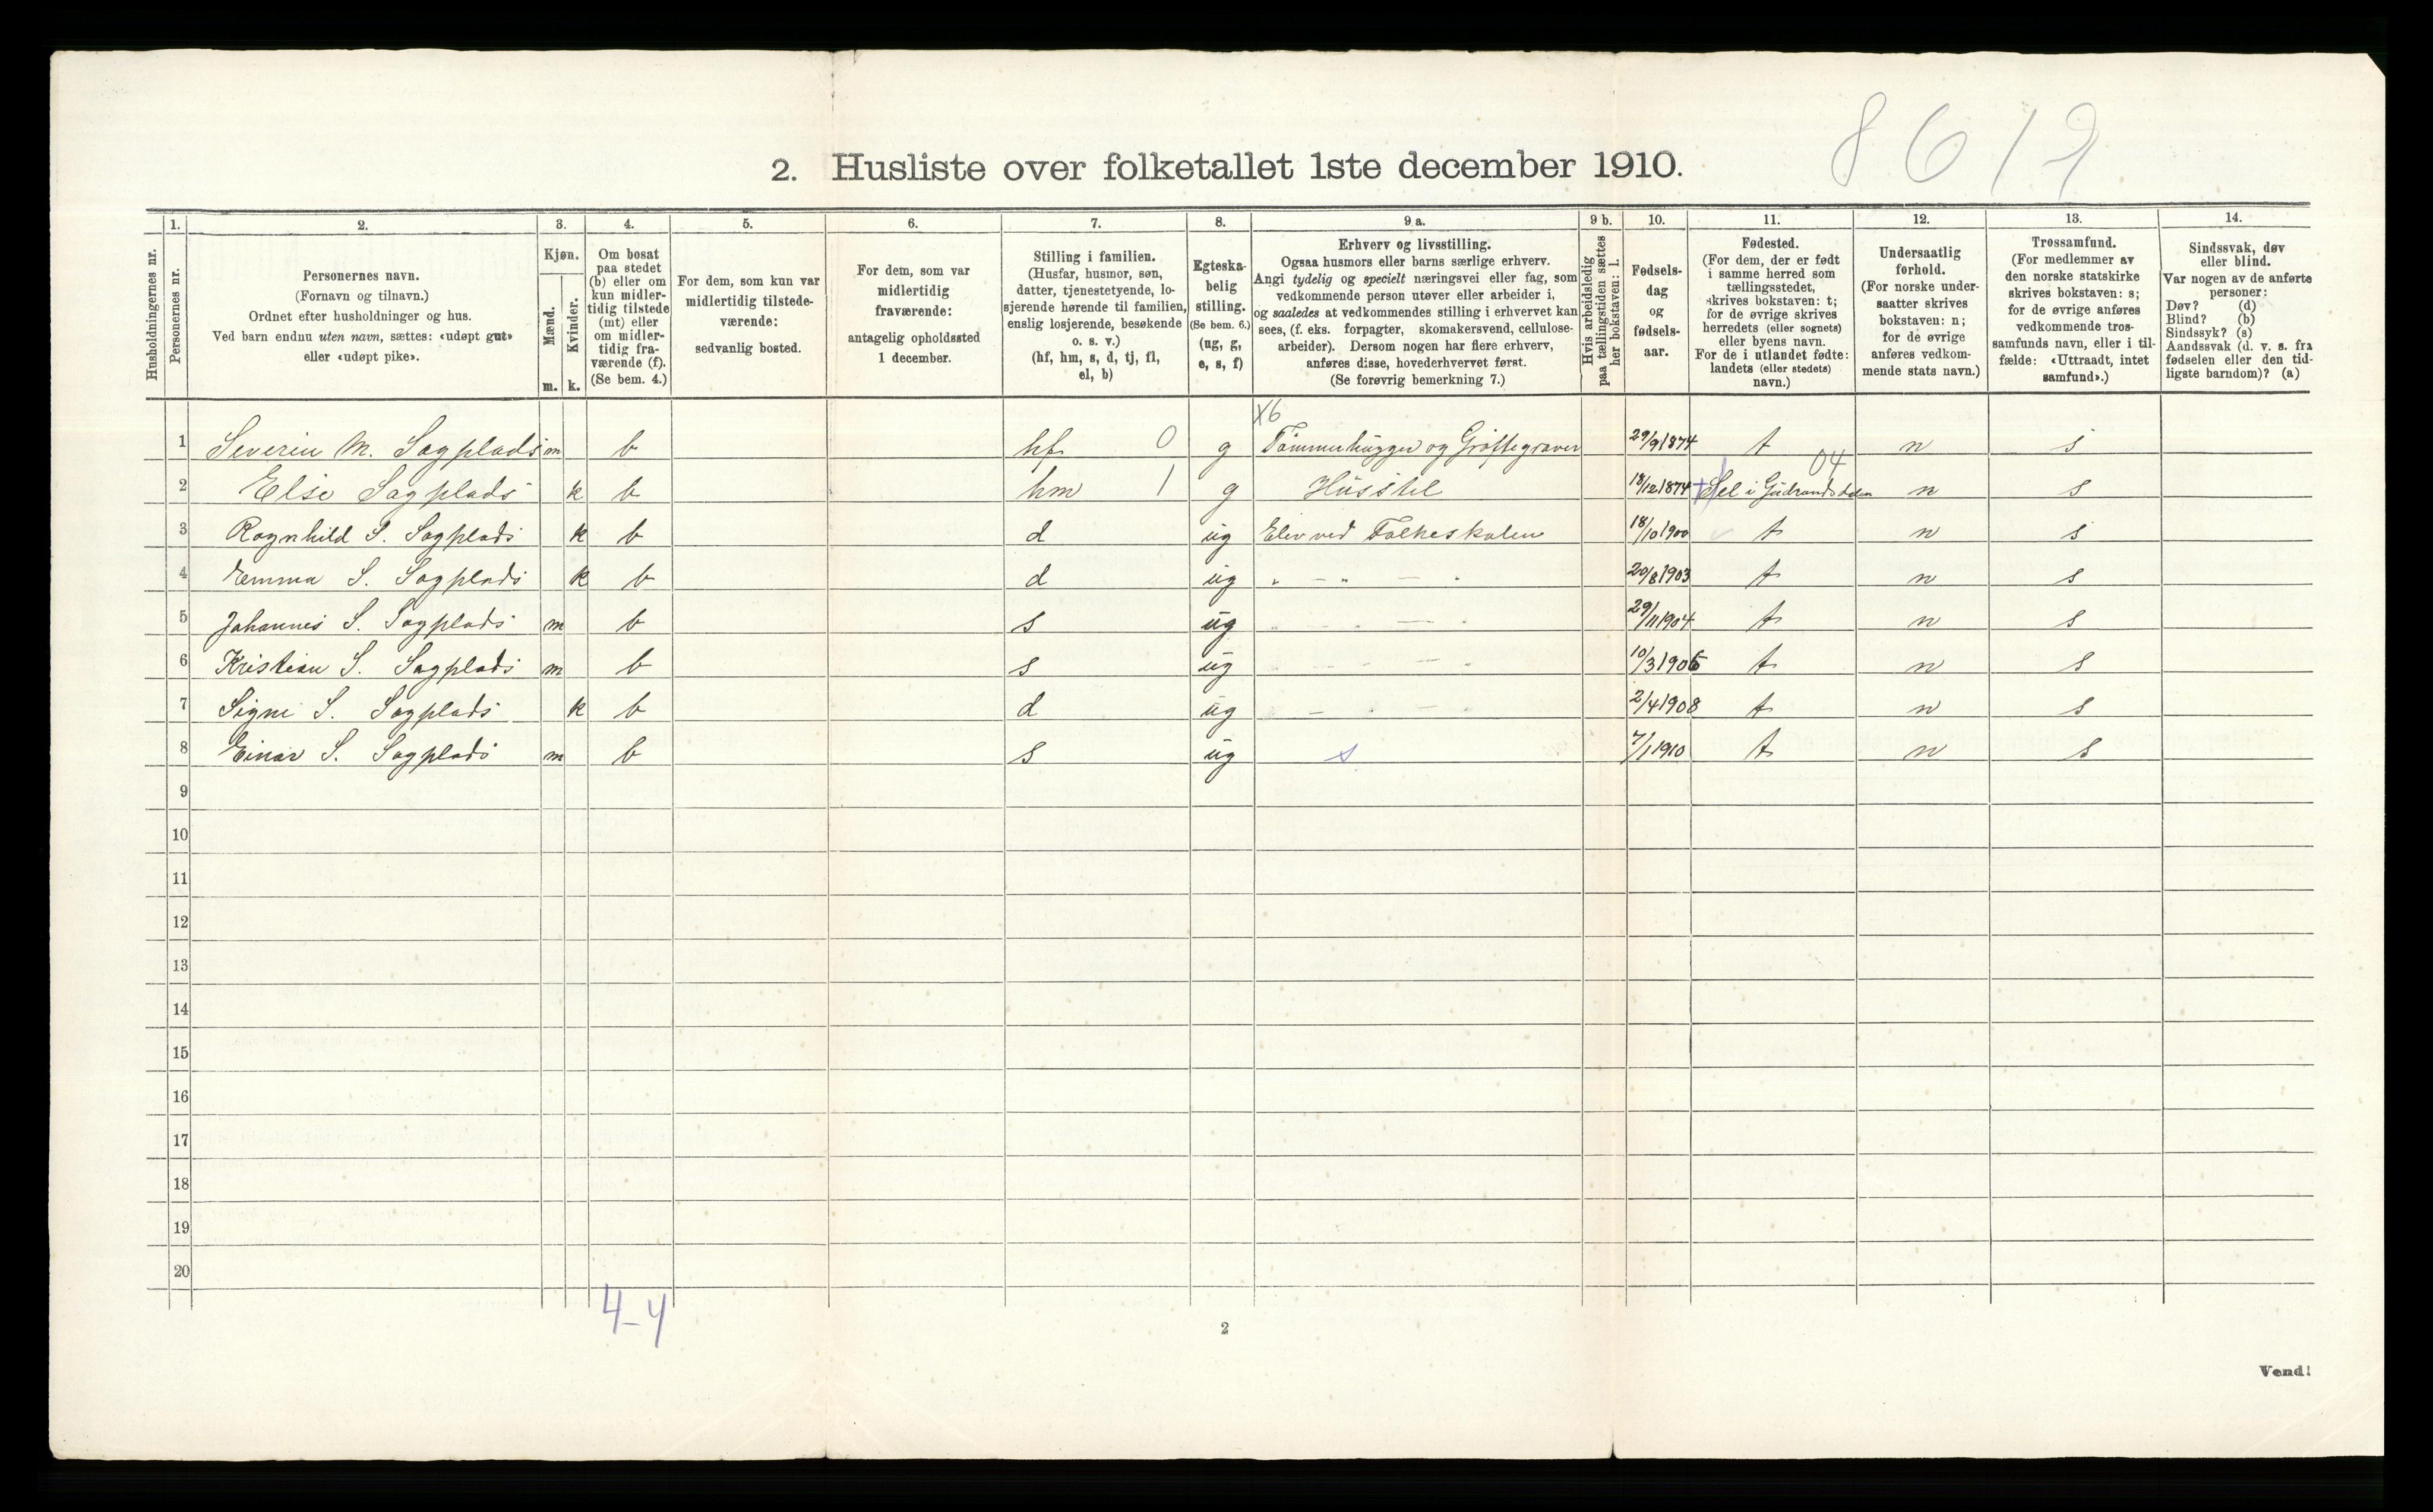 8 6 1 2
2. Husliste over folketallet 1ste december 1910.
Husholdningernes nr.
1. Personernes nr.
2. Personernes navn.
(Fornavn og tilnavn.)
Ordnet efter husholdninger og hus.
Ved barn endnu uten navn, sættes: «udøpt gut»
eller «udøpt pike».
3. Kjøn.
Mænd. m.
Kvinder. k.
4. Om bosat
paa stedet
(b) eller om
kun midler-
tidig tilstede
(mt) eller
om midler-
tidig fra-
værende (f).
(Se bem. 4.)
5. For dem, som kun var
midlertidig tilstede-
værende:
sedvanlig bosted.
6. For dem, som var
midlertidig
fraværende:
antagelig opholdssted
1 december.
7. Stilling i familien.
(Husfar, husmor, søn,
datter, tjenestetyende, lo-
sjerende hørende til familien,
enslig losjerende, besøkende
o. s. v.)
(hf, hm, s, d, tj, fl,
el, b)
8. Egteska-
belig
stilling.
(Se bem. 6.)
(ug, g,
e, s, f)
9 a. Erhverv og livsstilling.
Ogsaa husmors eller barns særlige erhverv.
Angi tydelig og specielt næringsvei eller fag, som
vedkommende person utøver eller arbeider i,
og saaledes at vedkommendes stilling i erhvervet kan
sees, (f. eks. forpagter, skomakersvend, cellulose-
arbeider). Dersom nogen har flere erhverv,
anføres disse, hovederhvervet først.
(Se forøvrig bemerkning 7.)
9 b. Hvis arbeidsledig
paa tællingstiden sættes
her bokstaven: l.
10. Fødsels-
dag
og
fødsels-
aar.
11. Fødested.
(For dem, der er født
i samme herred som
tællingsstedet,
skrives bokstaven: t;
for de øvrige skrives
herredets (eller sognets)
eller byens navn.
For de i utlandet fødte:
landets (eller stedets)
navn.)
12. Undersaatlig
forhold.
(For norske under-
saatter skrives
bokstaven: n;
for de øvrige
anføres vedkom-
mende stats navn.)
13. Trossamfund.
(For medlemmer av
den norske statskirke
skrives bokstaven: s;
for de øvrige anføres
vedkommende tros-
samfunds navn, eller i til-
fælde: «Uttraadt, intet
samfund».)
14. Sindssvak, døv
eller blind.
Var nogen av de anførte
personer:
Døv? (d)
Blind? (b)
Sindssyk? (s)
Aandssvak (d. v. s. fra
fødselen eller den tid-
ligste barndom)? (a)
X6
1 Severin M. Sagplads m b hf 0 g Tømmerhugger og Grøftegraver 29/9 1874 t n s
04
2 Else Sagplads k b hm 1 g Husstel 18/12 1874 Sel i Gudbrandsdalen n s
3 Ragnhild S. Sagplads k b d ug Elev ved Folkeskolen 18/10 1900 t n s
4 Emma S. Sagplads k b d ug " - " - " 20/8 1903 t n s
5 Johannes S. Sagplads m b s ug 29/11 1904 t n s
6 Kristian S. Sagplads m b s ug 10/3 1906 t n s
7 Signe S. Sagplads k b d ug 2/4 1908 t n s
8 Einar S. Sagplads m b s ug s 7/1 1910 t n s
9
10
11
12
13
14
15
16
17
18
19
20
4-4
2
Vend!